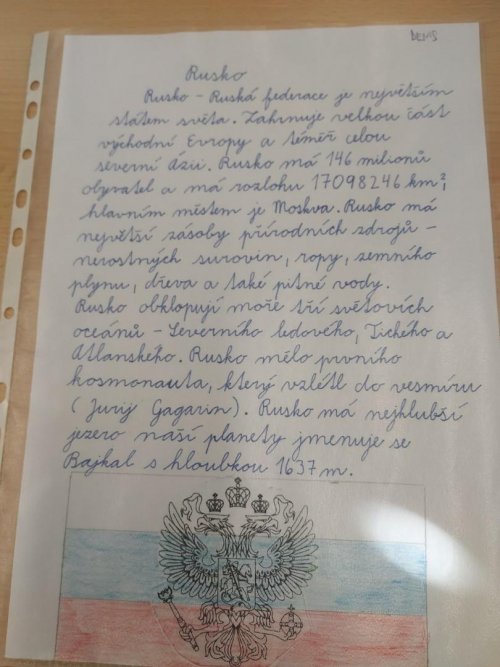 DENIS
Rusko
Rusko - Ruská federace je největším
státem světa. Zahrnuje velkou část
východní Evropy a téměř celou
severní Azii. Rusko má 146 milionů
obyvatel a má rozlohu 17098246 km²,
hlavním městem je Moskva. Rusko má
největší zásoby přírodních zdrojů -
nerostných surovin, ropy, zemního
plynu, dřeva a také pitné vody.
Rusko obklopují moře tří světových
oceánů - Severního ledového, Tichého a
Atlanského. Rusko mělo prvního
kosmonauta, který vzlétl do vesmíru
(Jurij Gagarin). Rusko má nejhlubší
jezero naší planety jmenuje se
Bajkal s hloubkou 1637 m.